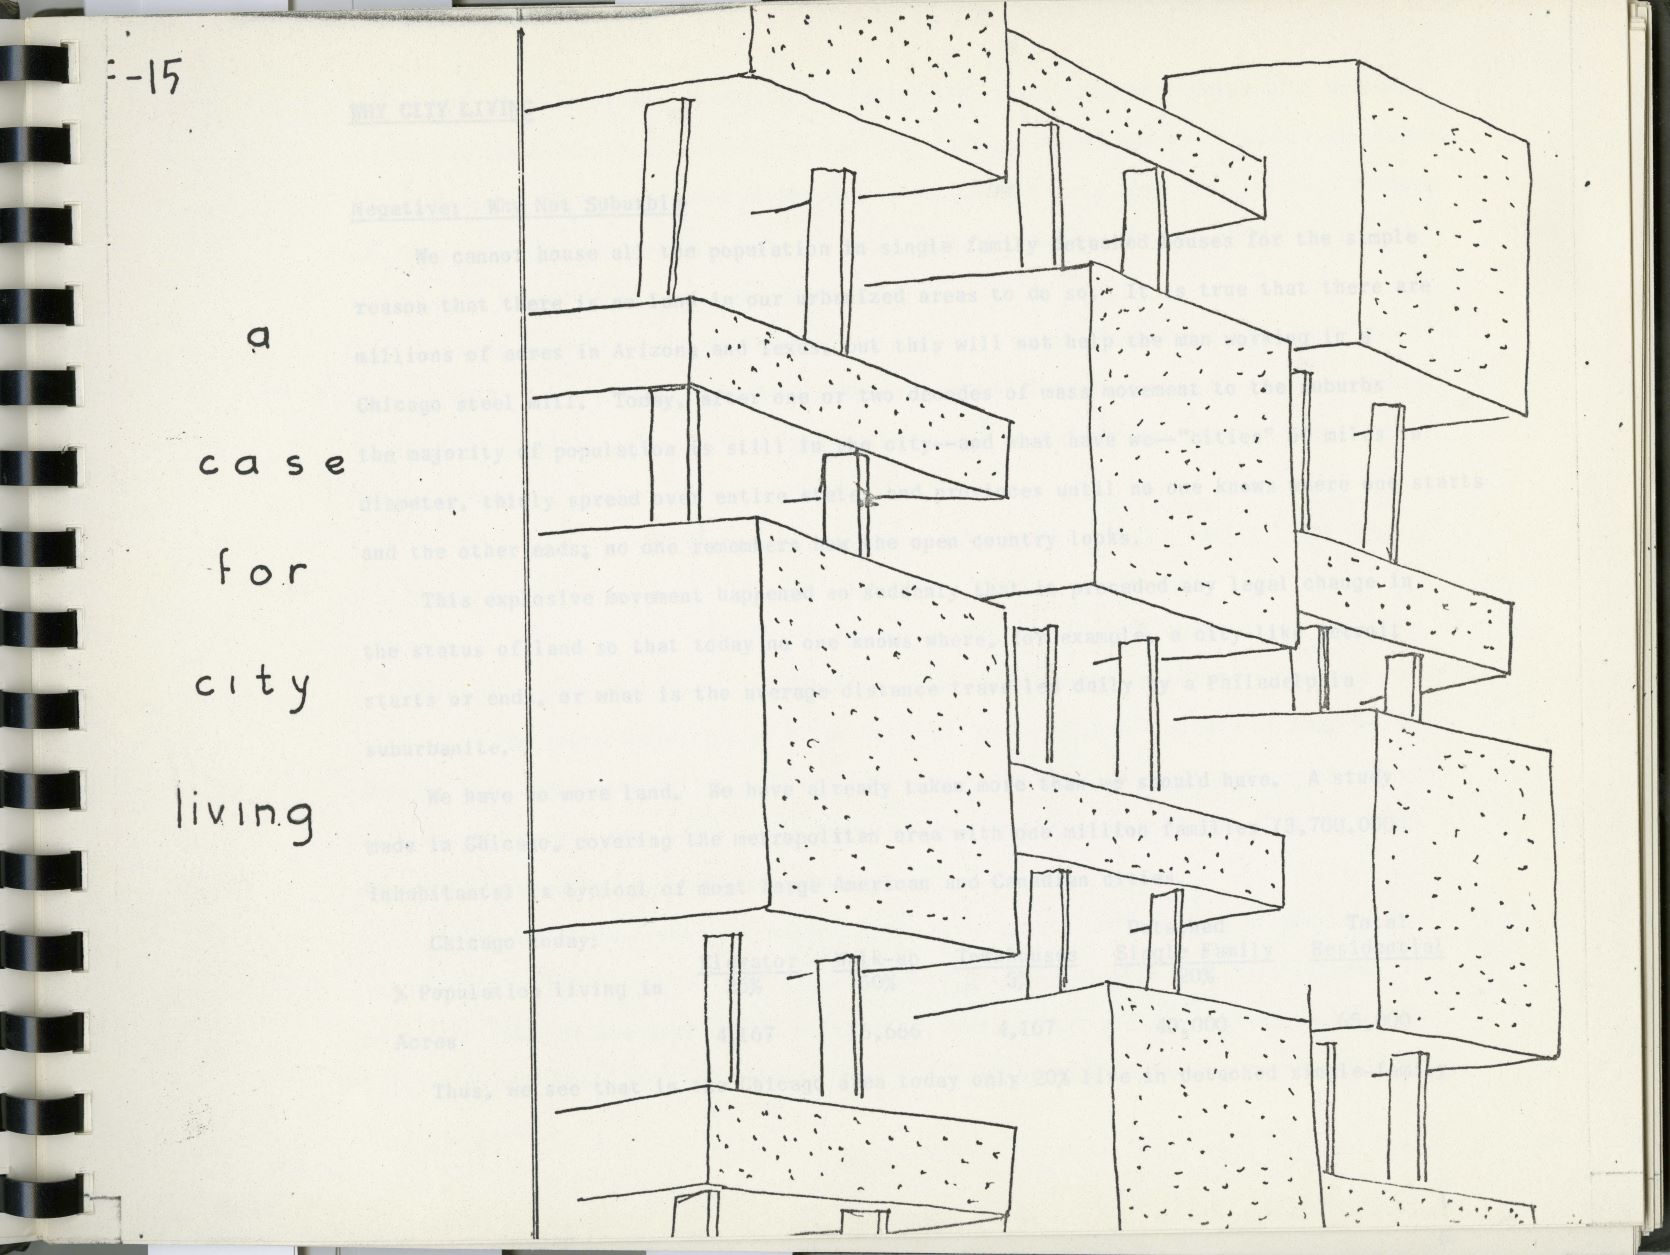 -15
a
case
for
city
living
WHY CITY LIVING
Negative: Why Not Suburbia
We cannot house all the population in single family detached houses for the simple
reason that there is no land in our urbanized areas to do so. It is true that there are
millions of acres in Arizona and Texas, but this will not help the man working in a
Chicago steel mill. Today, after one or two decades of mass movement to the suburbs
the majority of population is still in the city--and what have we--"cities" miles in
diameter, thinly spread over entire states and provinces until no one knows where one starts
and the other ends; no one remembers how the open country looks.
This explosive movement happened so suddenly that it preceded any legal change in
the status of land so that today no one knows where, for example, a city like Detroit
starts or ends, or what is the average distance travelled daily by a Philadelphia
suburbanite.
We have no more land. We have already taken more than we should have. A study
made in Chicago, covering the metropolitan area with one million families (3,700,000
inhabitants) is typical of most large American and Canadian cities.
Chicago today:
Detached Total
Elevator Walk-up Single Family Residential
% Population living in 20%
Acres 4,167 4,167
Thus, we see that in the Chicago area today only 20% live in detached single-family